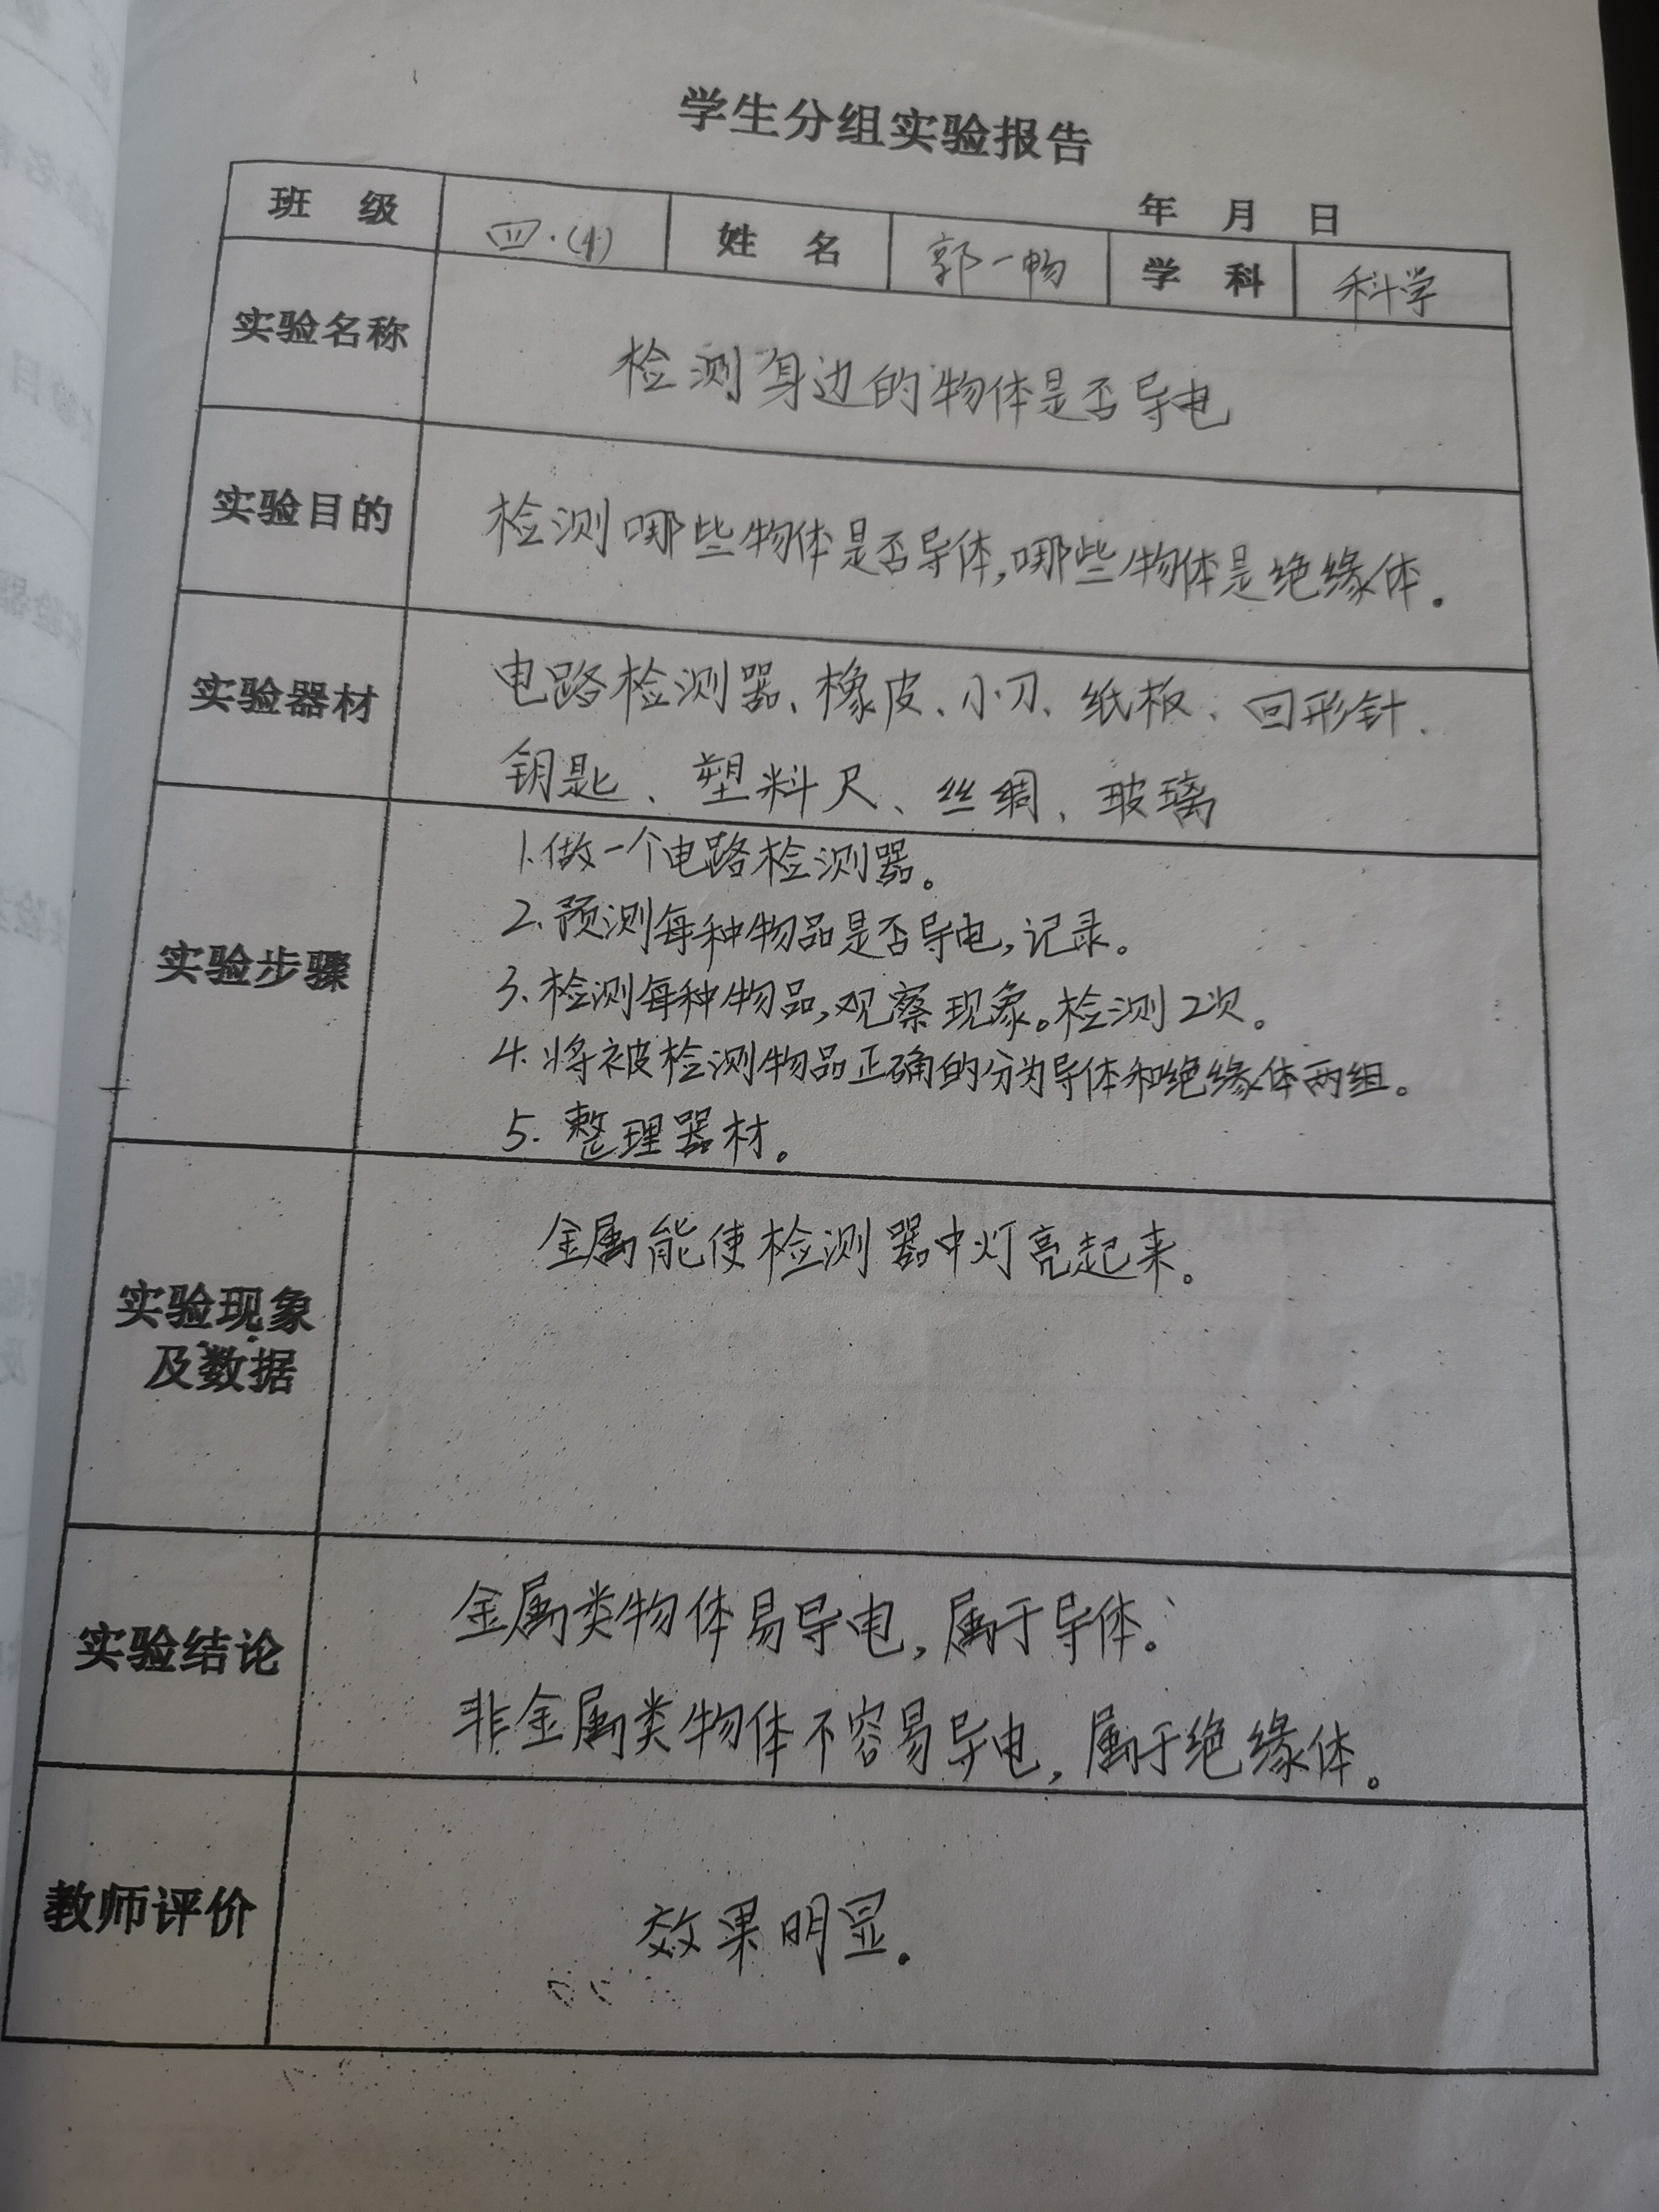 学生分组实验报告
年 月 日
班 级 四·(4) 姓 名 郭一畅 学 科 科学
实验名称 检测身边的物体是否导电
实验目的 检测哪些物体是否导体,哪些物体是绝缘体.
实验器材 电路检测器、橡皮、小刀、纸板、回形针、
钥匙、塑料尺、丝绸、玻璃
实验步骤 1.做一个电路检测器。
2.预测每种物品是否导电,记录。
3.检测每种物品,观察现象。检测2次。
4.将被检测物品正确的分为导体和绝缘体两组。
5.整理器材。
实验现象
及数据 金属能使检测器中灯亮起来。
实验结论 金属类物体易导电,属于导体。
非金属类物体不容易导电,属于绝缘体。
教师评价 效果明显.